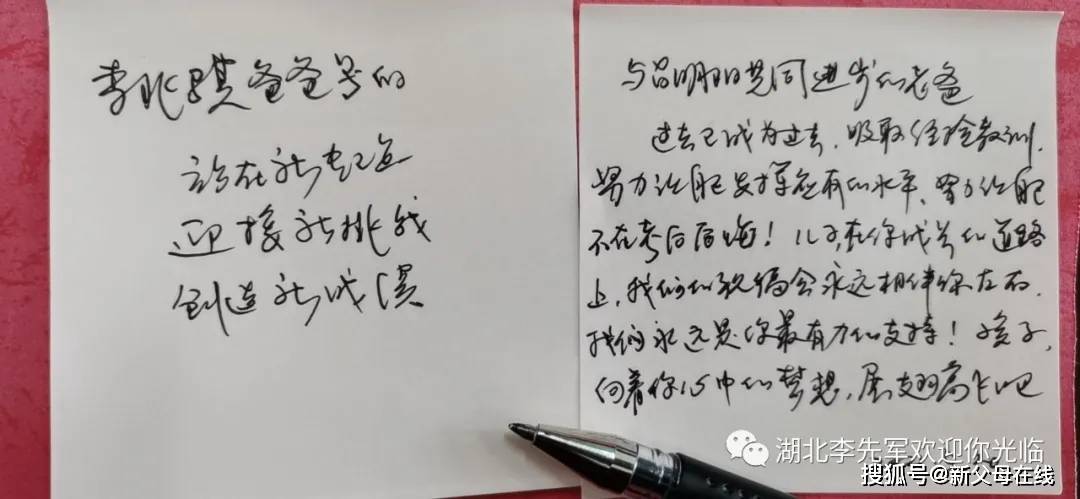 李兆骐爸爸写的
站在新起点
迎接新挑战
创造新成绩
与吕明阳共同进步的老爸
过去已成为过去,吸取经验教训,
努力让自己发挥应有的水平、努力让自己
不在考后后悔!儿子,在你成长的道路
上,我们的祝福会永远相伴你左右,
我们永远是你最有力的支持!孩子,
向着你心中的梦想,展翅高飞吧
湖北李先军欢迎你光临
搜狐号@新父母在线